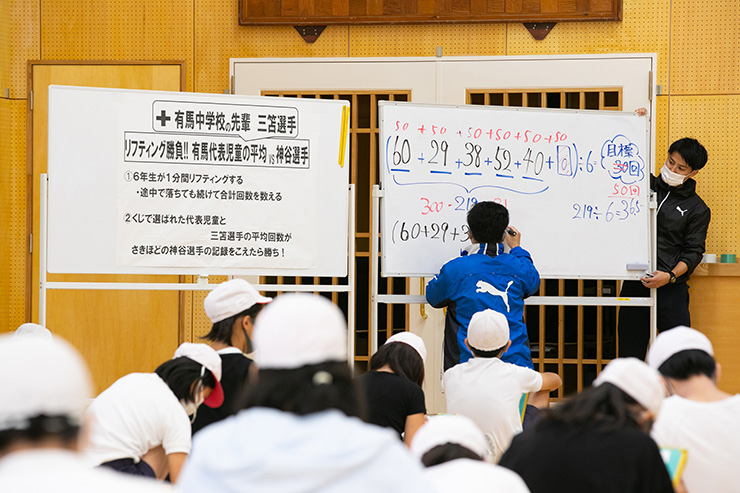 ✚ 有馬中学校の先輩 三笘選手
リフティング勝負!! 有馬代表児童の平均 vs 神谷選手
①6年生が1分間リフティングする
・途中で落ちても続けて合計回数を数える
②くじで選ばれた代表児童と
三笘選手の平均回数が
さきほどの神谷選手の記録をこえたら勝ち!
50 + 50 + 50 + 50 + 50 + 50
(60 + 29 + 38 + 52 + 40 + 0) ÷ 6
目標
30回
50回
300 - 219
219 ÷ 6 = 365
(60 + 29 + 3
PUMA